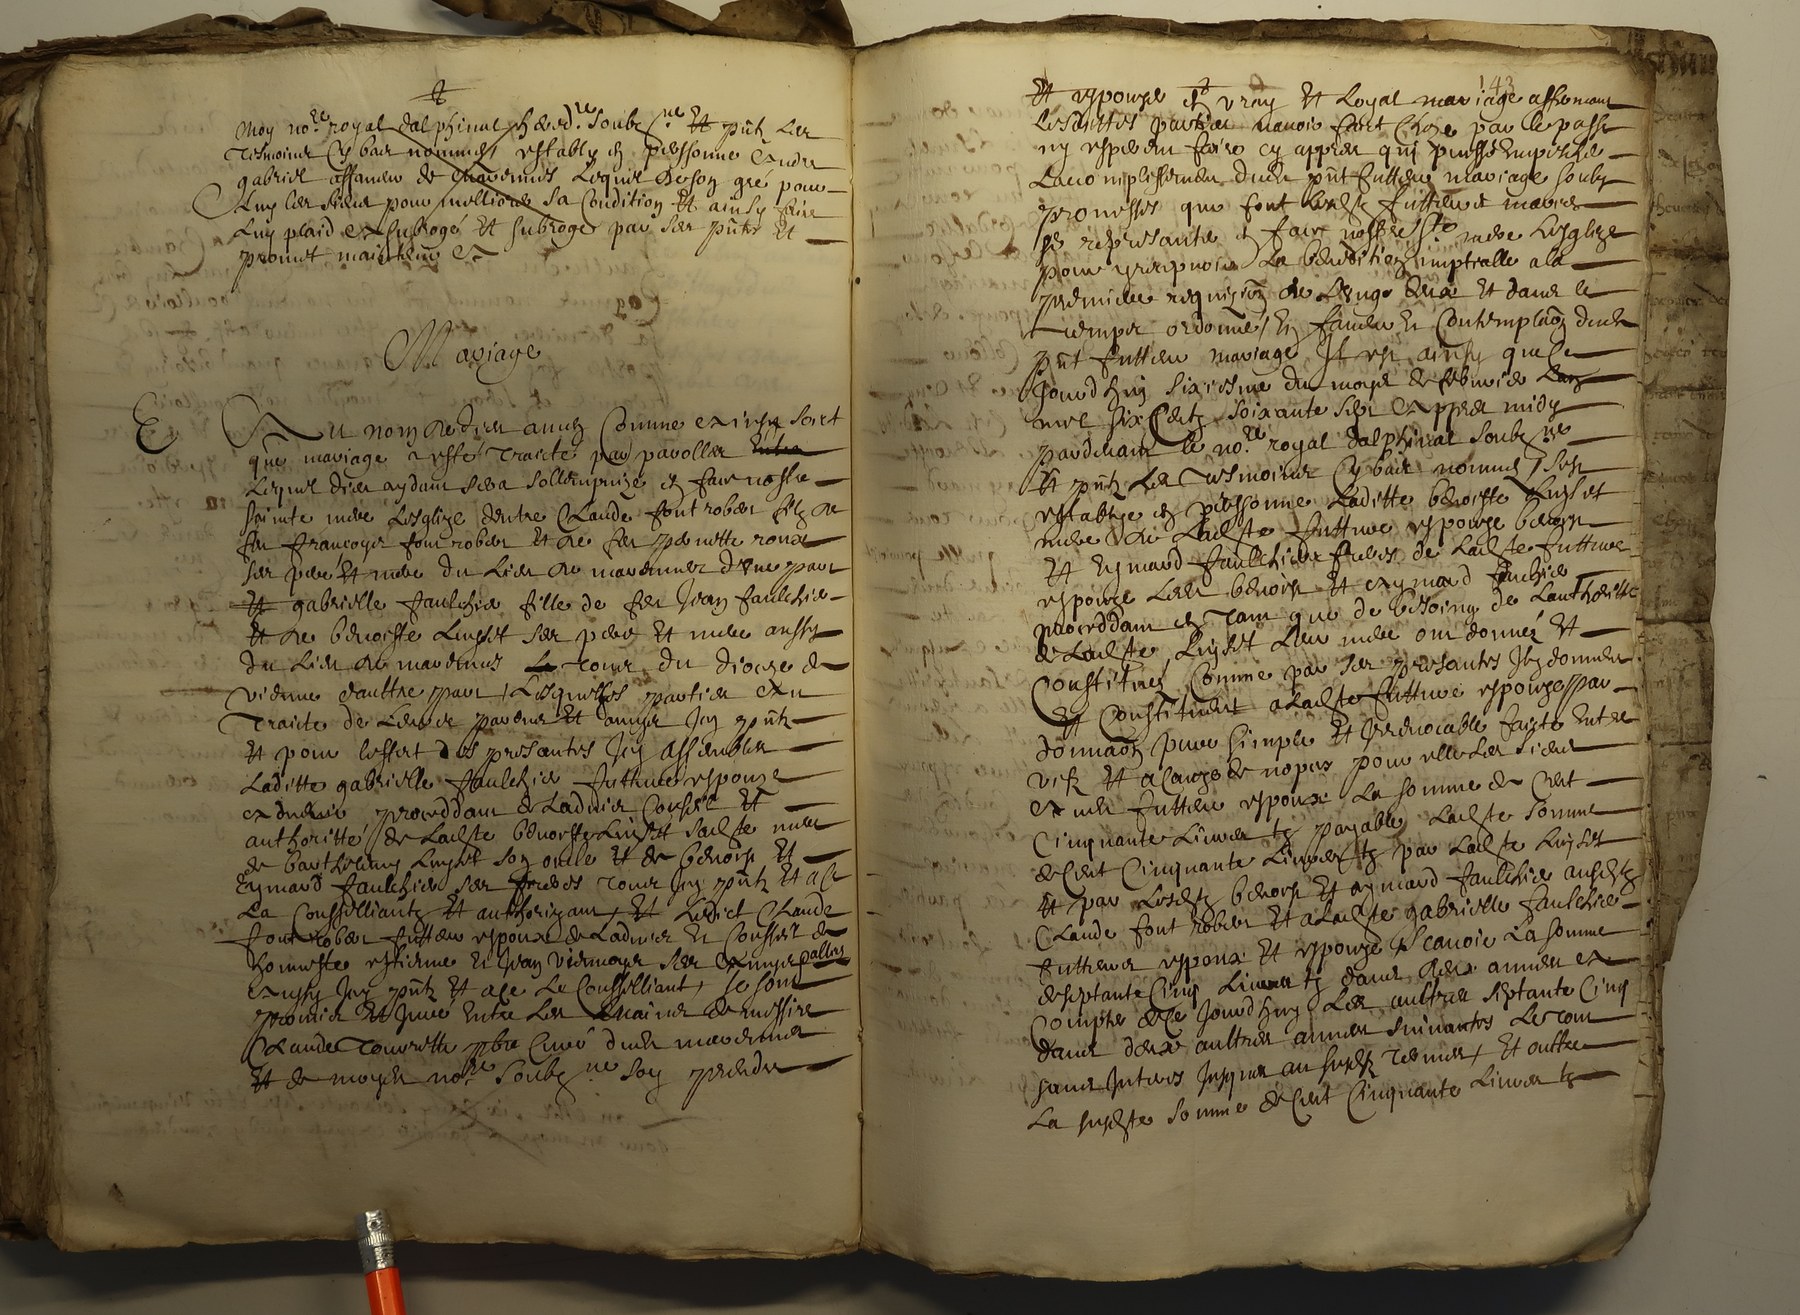 moy no.re royal dalphinal hered.re soubz.ne Et pntz Les
tesmoins Cy bas nommes estably en personne
gabriel de marennes Lequel de son gré pour
Luy Les siens pour melliorer sa Condition Et ainsy faire
Luy plaid a subrogé Et subroge par ses pntes Et
promet maintenir
Mariage
Au nom de dieu amen Comme ainsy soit
que mariage a esté traité par parolles
Lequel dieu aydant sera sollempnizé en face nostre
sainte mere Lesglize dentre Claude font robert filz de
feu françoys font robert Et de feu pernette roux
ses pere Et mere du Lieu de marennes d'une part
Et gabrielle faulchier fille de feu Jean faulchier
Et de benoiste Luyset ses pere Et mere aussy
du Lieu de marennes tous du dioceze de
vienne d'aultre part, Lesquelles parties au
traité de Leurs parens Et amys Icy pntz
Et pour Leffect des presantes Icy assembles
Laditte gabrielle faulchier futture espouze
proceddant de Ladvis Conseil Et
authoritté de Ladte benoiste Luyset sadte mere
de barthelemy Luyset son oncle Et de benoist Et
Eymard faulchier ses freres tous Icy pntz Et a ce
La Conseilliantz Et authorizant, Et Ledict Claude
font robert futteur espoux de Ladvis Et Conseil de
honneste estienne Et Jean viennoys ses
aussy Icy pntz Et a ce Le Conseilliant, se sont
promis Et Juré Entre Les mains de messire
Claude pbre Curé dudt marennes
Et de moydt no.re soubz.ne soy prendre
143
Et espouzer en vray Et Loyal mariage affirmant
Lesdittes parties navoir fait Choze par le passé
ny esperer faire cy appres qui puisse Empescher
Laccomplissement dudt pnt futteur mariage soubz
promesses que font Lesdtz futteurs maries
se représanter en face nostre ste mere Lesglize
pour y recepvoir La benedition nuptialle a la
premiere requizion de Lung deux Et dans le
temps ordonné, En faveur Et Contemplaon dudt
pnt futteur mariage, Il est ainsy que Ce
Jourdhuy sixiesme du moys de febvrier
mil six Centz soixante sept appres midy
pardevant le no.re royal dalphinal soubz.ne
Et pntz Les tesmoins Cy bas nommes, sest
establye en personne Laditte benoiste Luyset
mere de Ladte futture espouze benoist
Et Eymard faulchier freres de Ladte futture
espouze Lesdt benoist Et eymard faulchier
proceddant en tant que de besoing de Lauthoritté
de Ladte Luyset Leur mere ont donnéz Et
Constitues Comme par ses presantes Ilz donnent
Et Constituent a Ladte futture espouze par
donnaon pure simple Et Irrevocable faitte Entre
vifz Et a Cause de nopces pour elle Les siens
Et sondt futteur espoux La somme de Cent
Cinquante Livres tz payable Ladte somme
de Cent Cinquante Livres tz par Ladte Luyset
Et par Lesdtz benoist Et eymard faulchier ausdtz
Claude font robert Et a Ladte gabrielle faulchier
futteurs espoux Et espouze, scavoir La somme
de septante Cinq Livres tz dans deux annees a
Compter de Ce Jourdhuy Les aultres septante Cinq
dans deux aultres annees suivantes Le tout
sans Interes Jusques ausdtz termes, Et oultre
La susdte somme de Cent Cinquante Livres tz